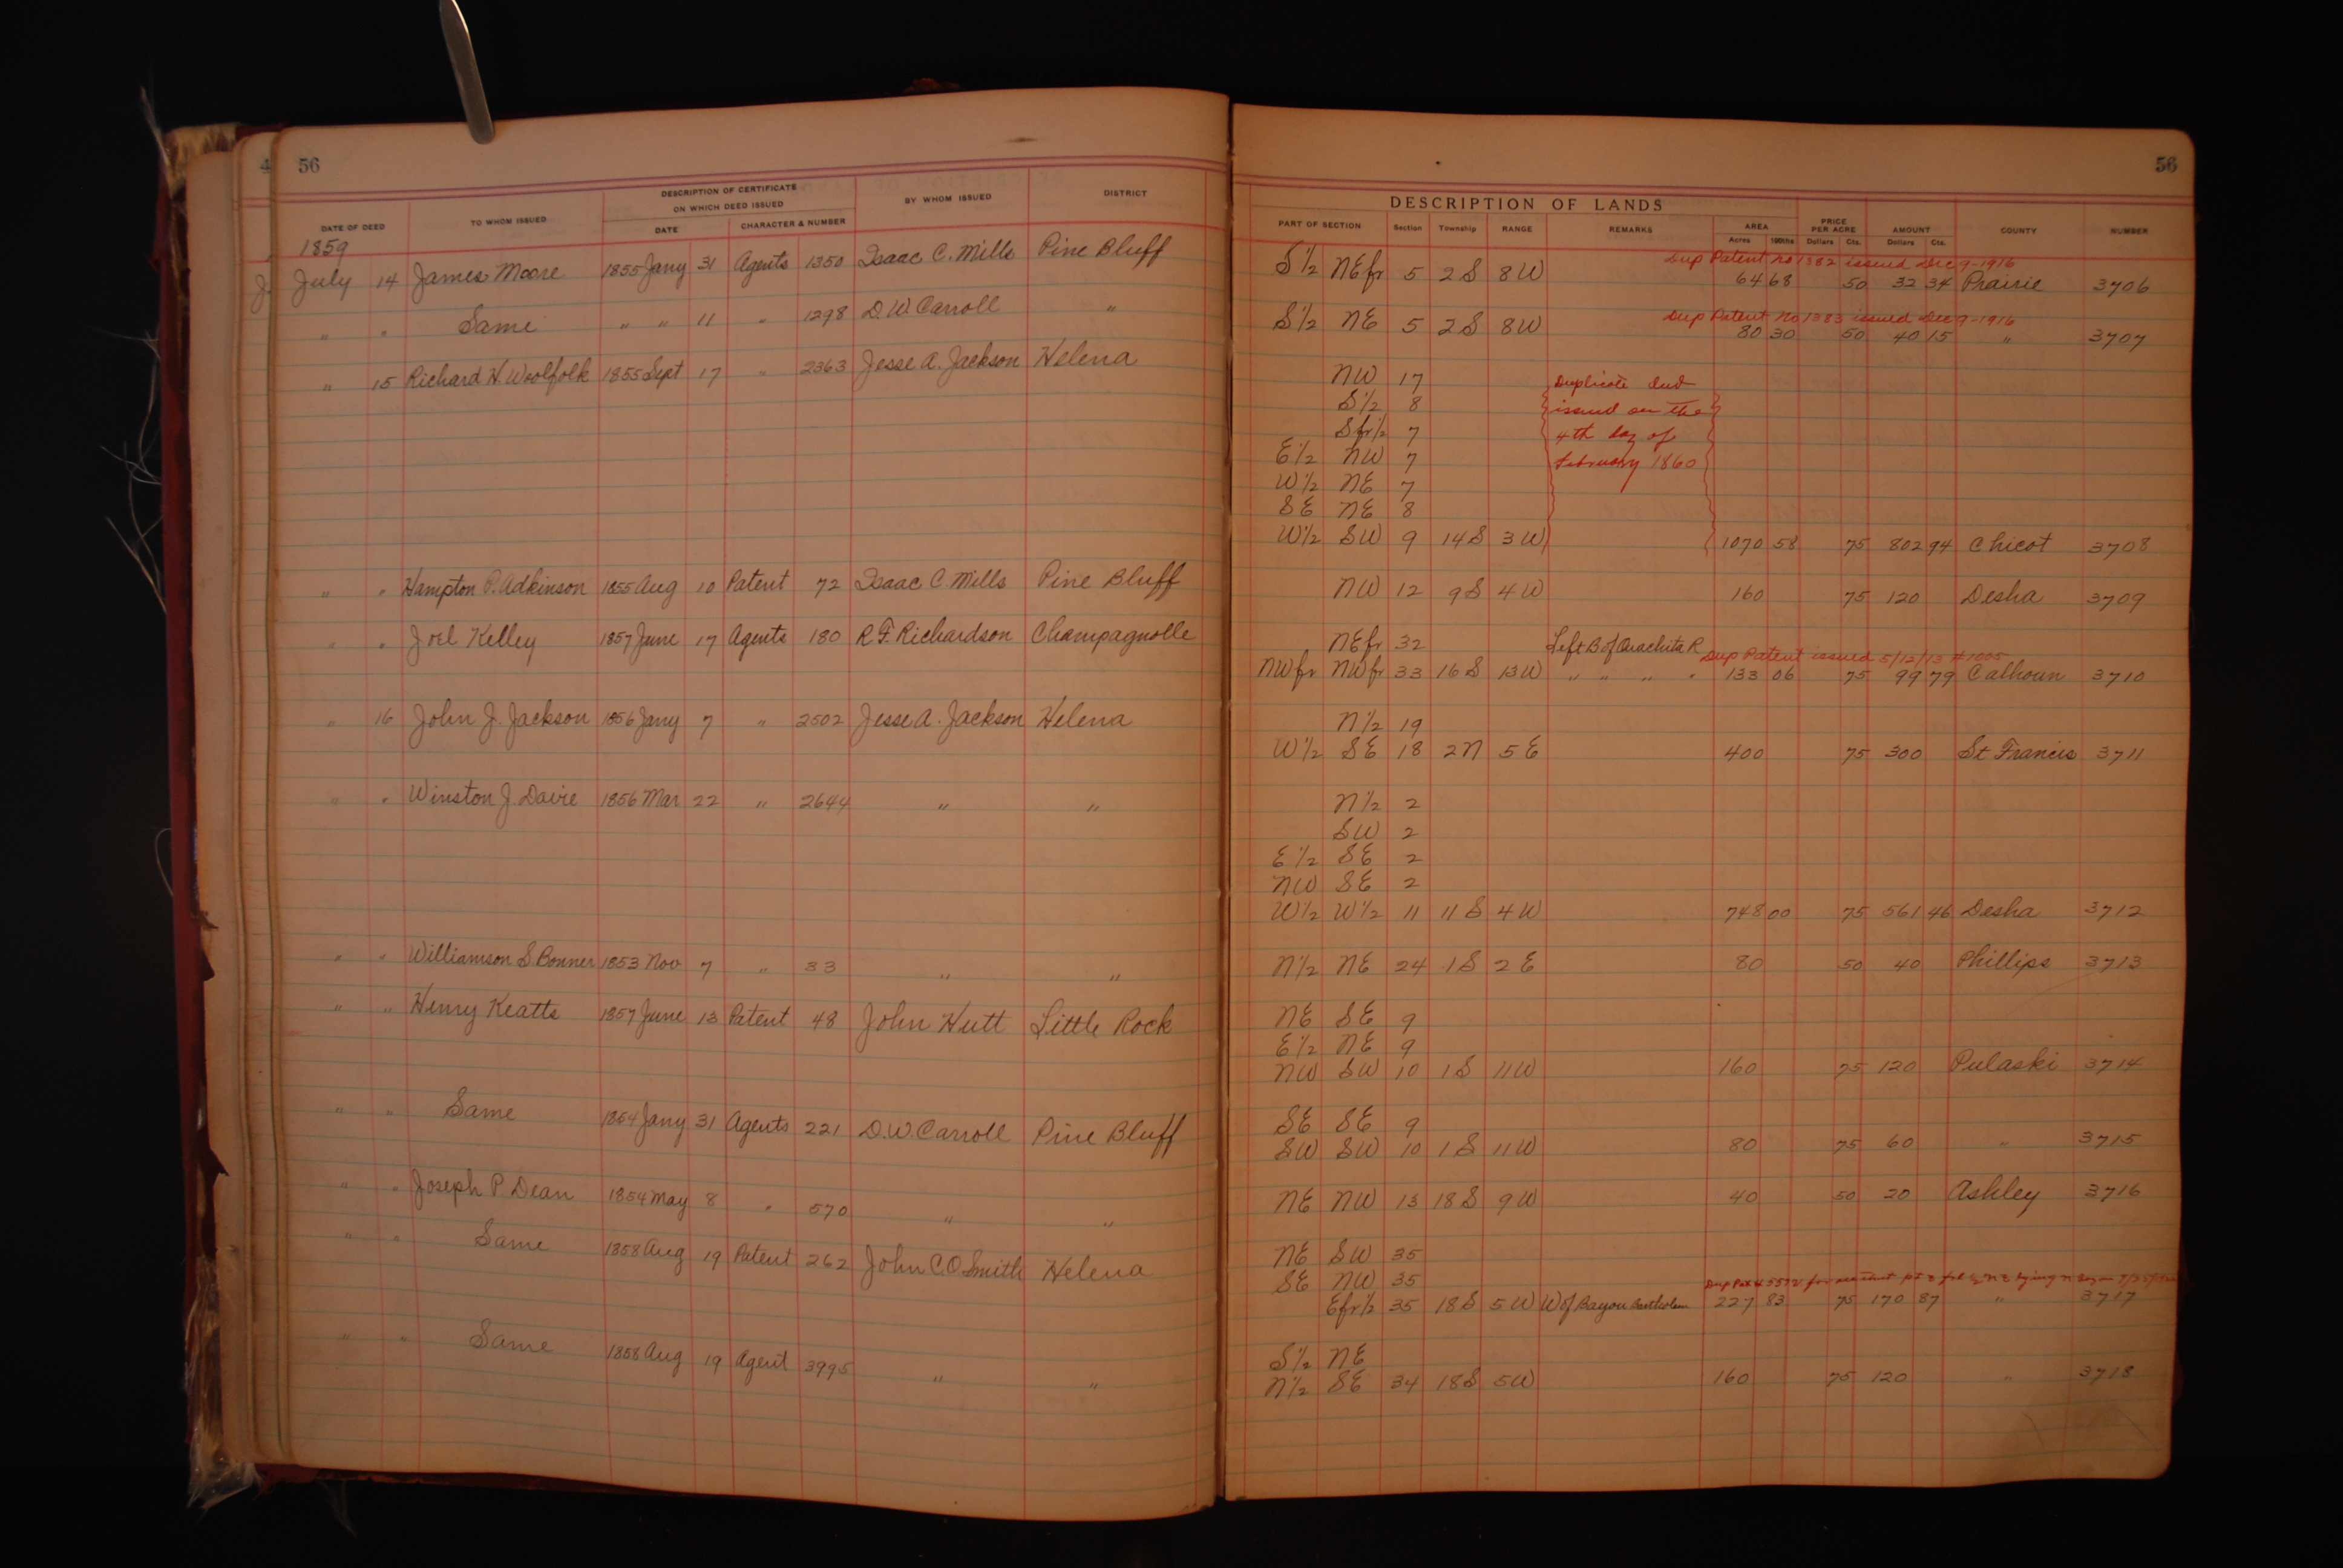 4 56
DESCRIPTION OF CERTIFICATE
ON WHICH DEED ISSUED
DATE OF DEED TO WHOM ISSUED DATE CHARACTER & NUMBER BY WHOM ISSUED DISTRICT
1859
July 14 James Moore 1855 Jany 31 Agents 1350 Isaac C. Mills Pine Bluff
" " Same " " 11 " 1298 D. W. Carroll "
" 15 Richard H. Woolfolk 1855 Sept 17 " 2363 Jesse A. Jackson Helena
" " Hampton P. Adkinson 1855 Aug 10 Patent 72 Isaac C. Mills Pine Bluff
" " Joel Kelley 1857 June 17 Agents 180 R. F. Richardson Champagnolle
" 16 John J. Jackson 1856 Jany 7 " 2502 Jesse A. Jackson Helena
" " Winston J. Davie 1856 Mar 22 " 2644 " "
" " Williamson S. Bonner 1853 Nov 7 " 33 " "
" " Henry Keatts 1857 June 13 Patent 48 John Hutt Little Rock
" " Same 1854 Jany 31 Agents 221 D. W. Carroll Pine Bluff
" " Joseph P. Dean 1854 May 8 " 570 " "
" " Same 1858 Aug 19 Patent 262 John C. O. Smith Helena
" " Same 1858 Aug 19 Agent 3995 " "
56
DESCRIPTION OF LANDS
PART OF SECTION Section Township RANGE REMARKS AREA PRICE PER ACRE AMOUNT COUNTY NUMBER
Acres 100ths Dollars Cts. Dollars Cts.
Dup Patent No 1382 issued Dec 9-1916
S½ NEfr 5 2S 8W 64 68 50 32 34 Prairie 3706
Dup Patent No 1383 issued Dec 9-1916
S½ NE 5 2S 8W 80 30 50 40 15 " 3707
NW 17 Duplicate deed
S½ 8 issued on the
Sfr½ 7 4th day of
E½ NW 7 February 1860
W½ NE 7
SE NE 8
W½ SW 9 14S 3W 1070 58 75 802 94 Chicot 3708
NW 12 9S 4W 160 75 120 Desha 3709
NEfr 32 Left B of Ouachita R
Dup Patent issued 5/12/13 #1005
NWfr NWfr 33 16S 13W " " " " 133 06 75 99 79 Calhoun 3710
N½ 19
W½ SE 18 2N 5E 400 75 300 St Francis 3711
N½ 2
SW 2
E½ SE 2
NW SE 2
W½ W½ 11 11S 4W 748 00 75 561 46 Desha 3712
N½ NE 24 1S 2E 80 50 40 Phillips 3713
NE SE 9
E½ NE 9
NW SW 10 1S 11W 160 75 120 Pulaski 3714
SE SE 9
SW SW 10 1S 11W 80 75 60 " 3715
NE NW 13 18S 9W 40 50 20 Ashley 3716
NE SW 35
SE NW 35 Dup Pat
Efr½ 35 18S 5W W of Bayou Bartholem 227 83 75 170 87 " 3717
S½ NE
N½ SE 34 18S 5W 160 75 120 " 3718